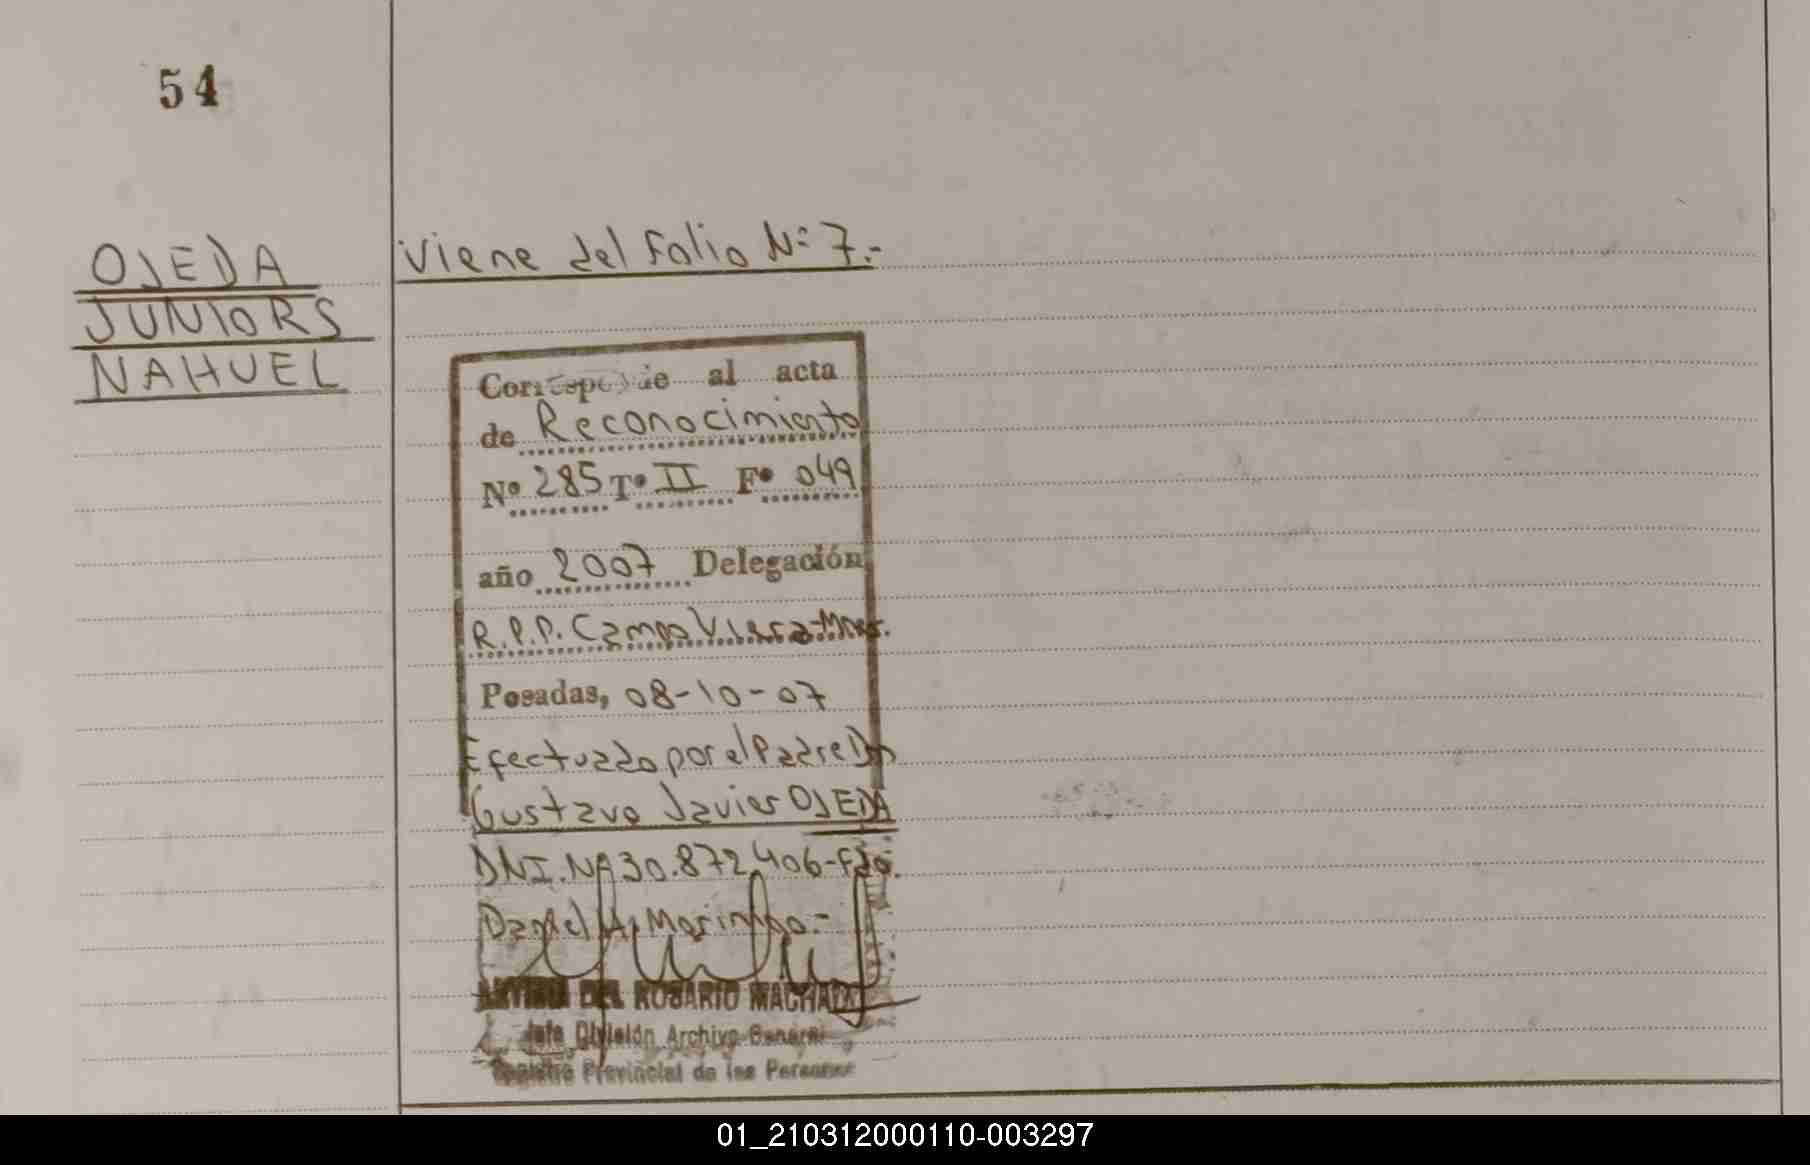 54
OJEDA
JUNIORS
NAHUEL
Viene del Folio Nº 7.-
Corresponde al acta
de Reconocimiento
Nº 285 Tº II Fº 049
año 2007 Delegación
R.P.P. Campo Viera-Mnes.
Posadas, 08-10-07
Efectuado por el Padre Dn
Gustavo Javier OJEDA
DNI.Nº 30.872.406-Fdo.
Daniel A. Marinho.-
DEL ROSARIO MACHADO
Jefe División Archivo General
Registro Provincial de las Personas
01_210312000110-003297